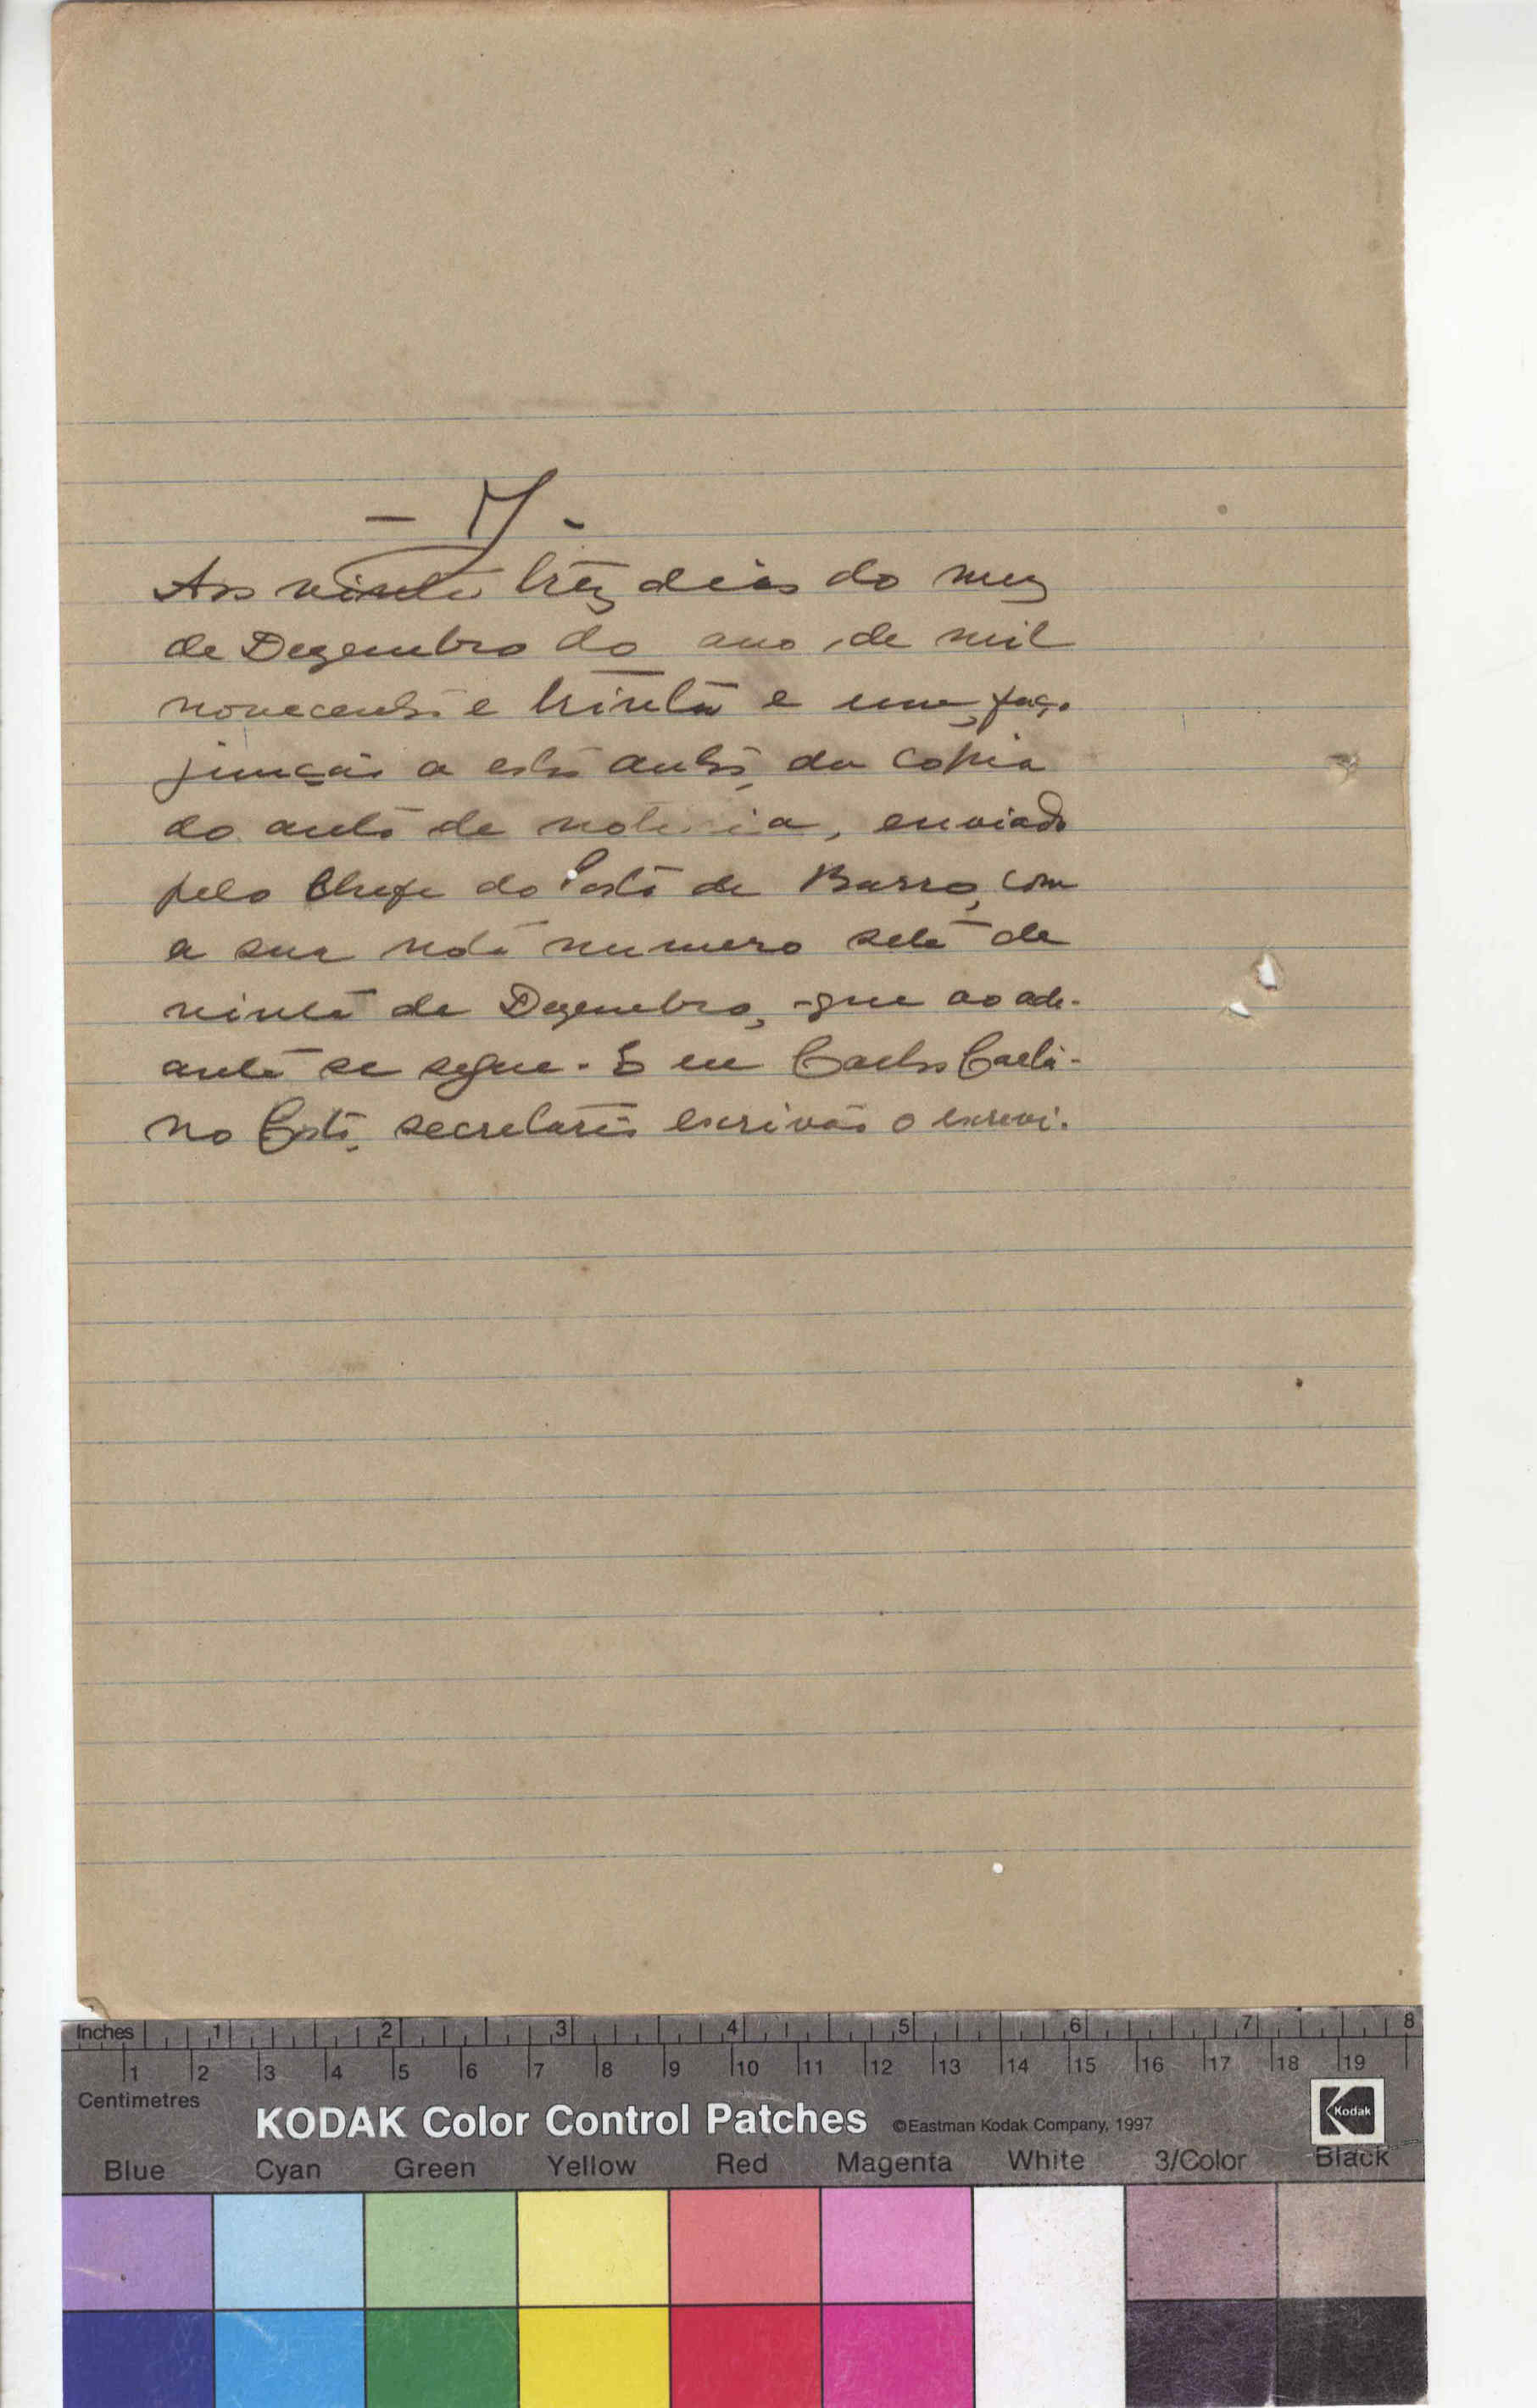 Aos vinte três dias do mez
de Dezembro do ano de mil
novecentos e trinta e um, faço
junção a estes autos, da copia
do auto de noticia, enviado
pelo Chefe do Posto de Barro, com
a sua nota numero sete de
vinte de Dezembro, que ao adi-
ante se segue. E eu Carlos Caeta-
no Costa, secretario escrivão o escrevi.
Inches 1 2 3 4 5 6 7 8
1 2 3 4 5 6 7 8 9 10 11 12 13 14 15 16 17 18 19
Centimetres
KODAK Color Control Patches ©Eastman Kodak Company, 1997 Kodak
Blue Cyan Green Yellow Red Magenta White 3/Color Black